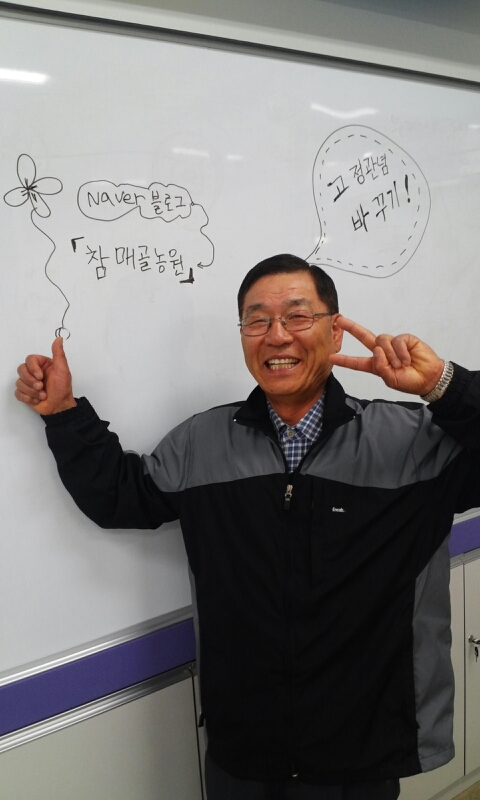 Naver 블로그
「참매골농원」
고정관념
바꾸기!